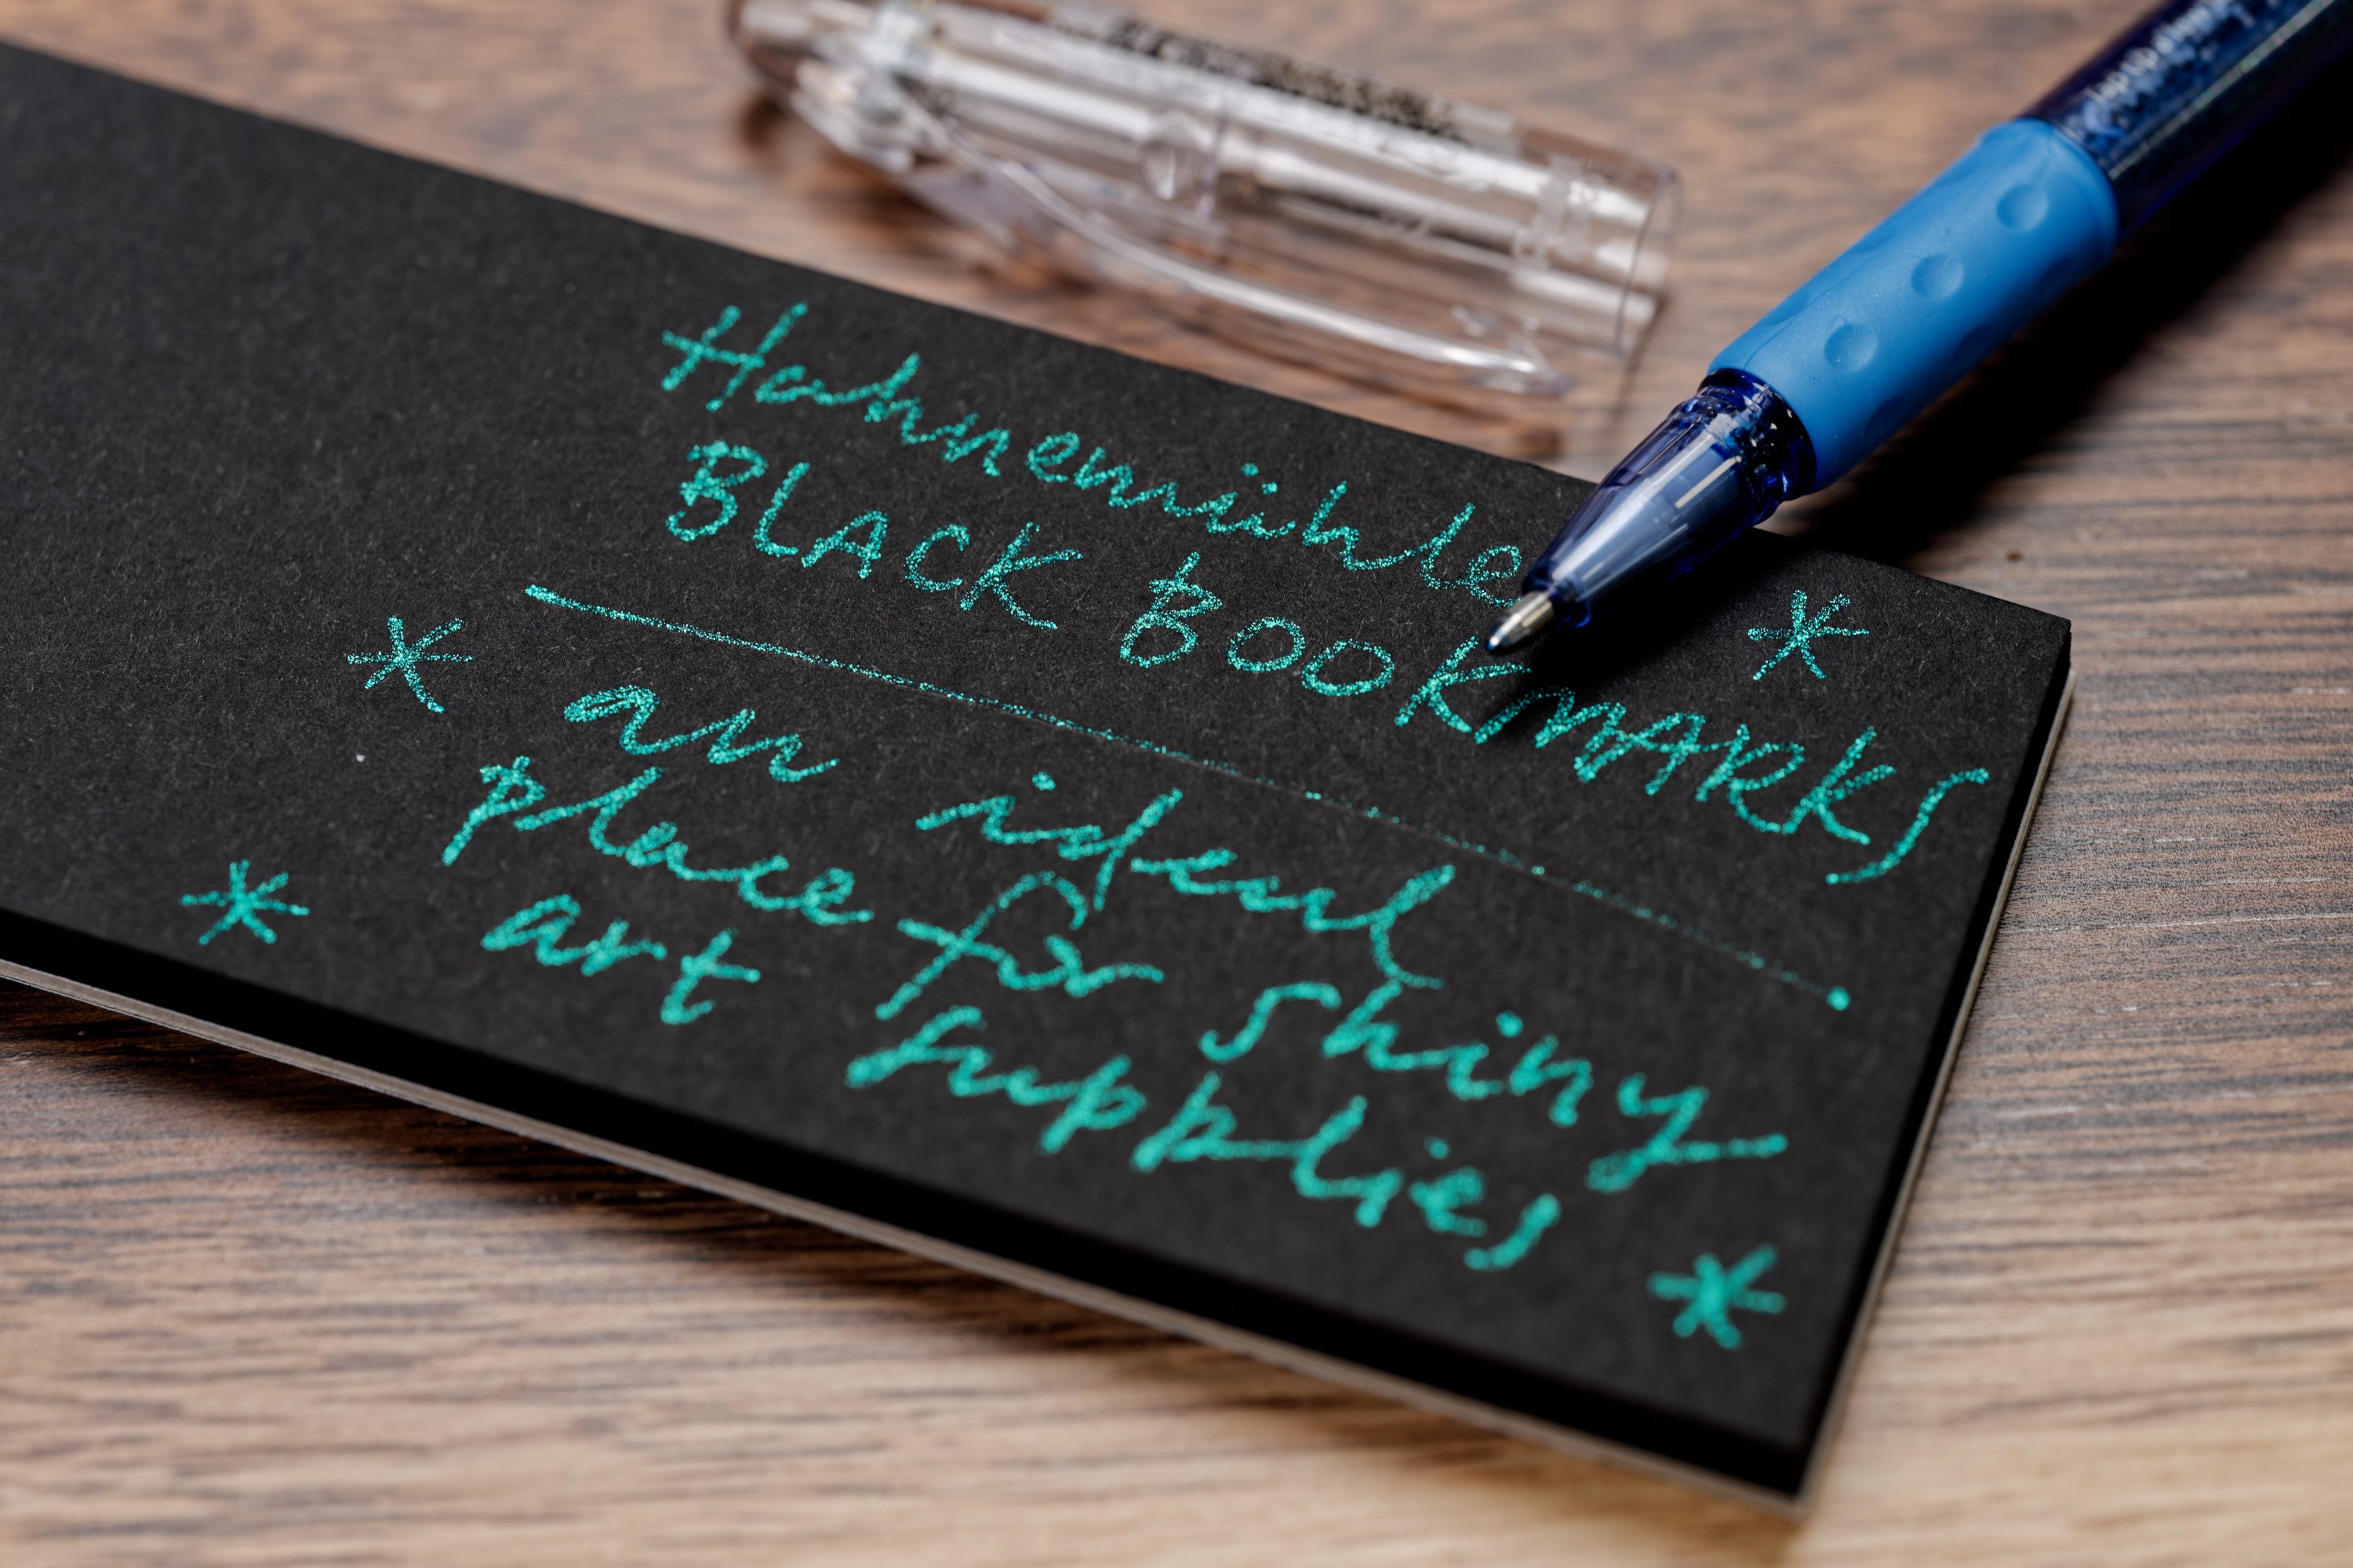 Hahnemühle
BLACK BOOKMARKS
an ideal
place for shiny
art supplies